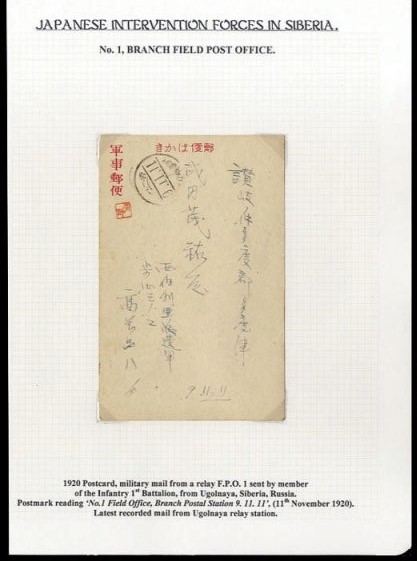 JAPANESE INTERVENTION FORCES IN SIBERIA.
No. 1, BRANCH FIELD POST OFFICE.
きかは便郵
軍事郵便
讃岐仲多度郡多度津
9. 11. 11
1920 Postcard, military mail from a relay F.P.O. 1 sent by member
of the Infantry 1st Battalion, from Ugolnaya, Siberia, Russia.
Postmark reading ‘No.1 Field Office, Branch Postal Station 9. 11. 11’, (11th November 1920).
Latest recorded mail from Ugolnaya relay station.